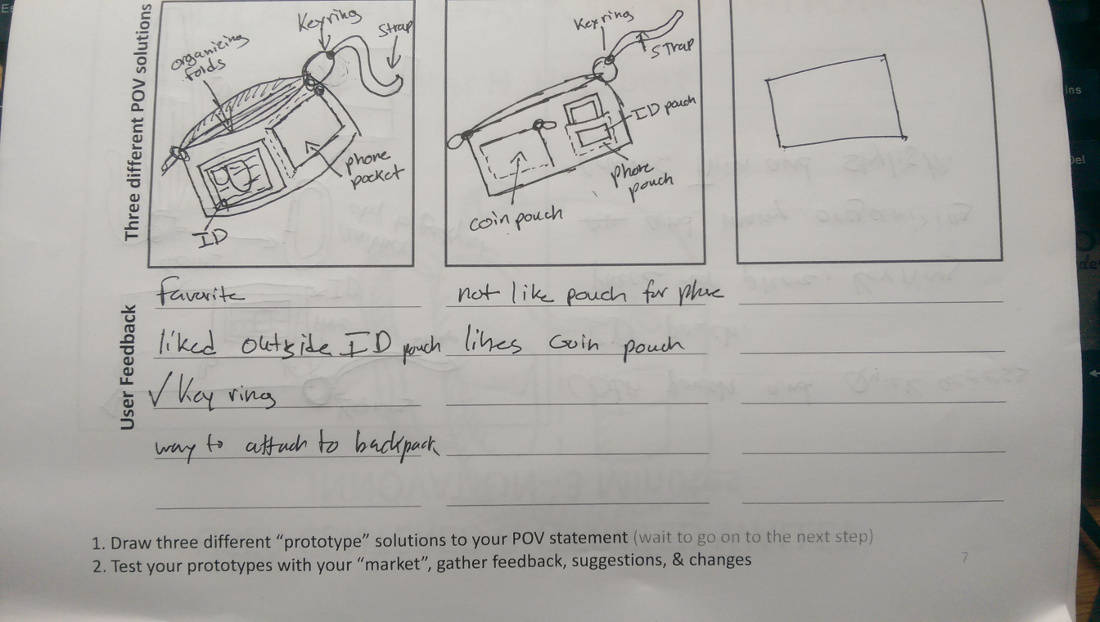 Three different POV solutions
Keyring
Strap
organizing
folds
phone
pocket
ID
Keyring
STrap
ID pouch
phone
pouch
coin pouch
User Feedback
favorite
liked outside ID pouch
✓ Key ring
way to attach to backpack
not like pouch for phone
likes coin pouch
1. Draw three different “prototype” solutions to your POV statement (wait to go on to the next step)
2. Test your prototypes with your “market”, gather feedback, suggestions, & changes
7